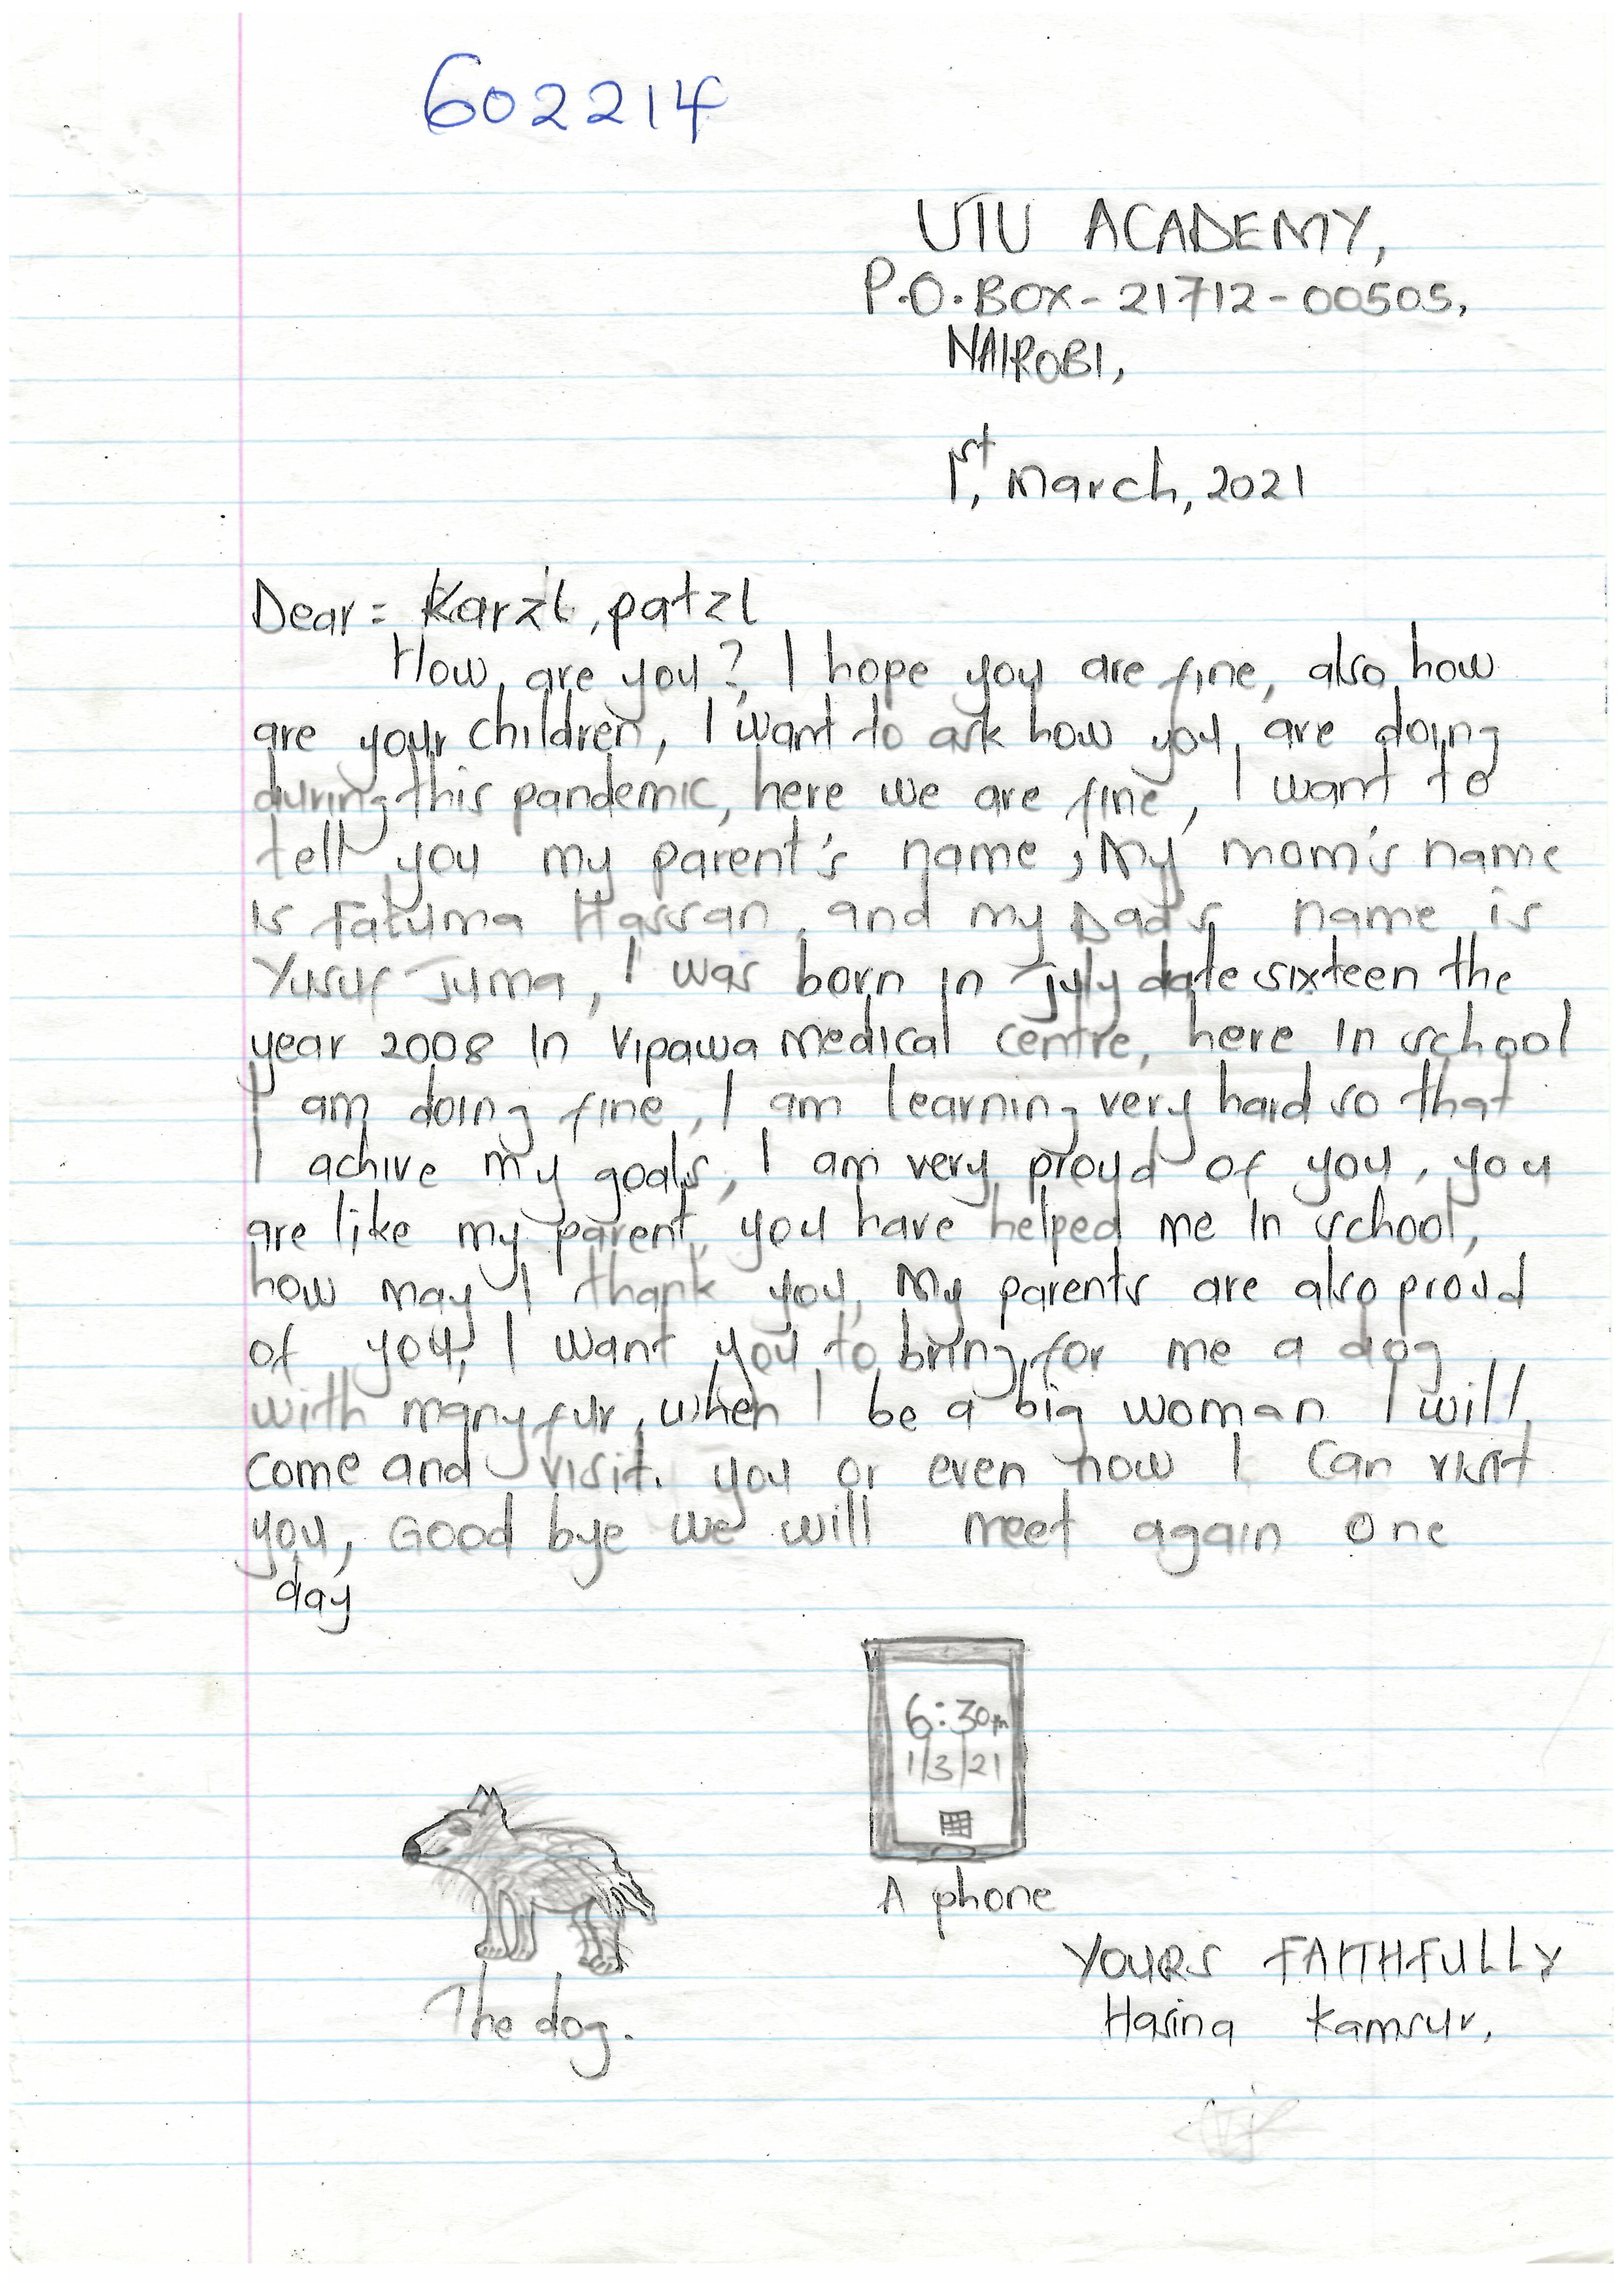 602214
UTU ACADEMY,
P.O.BOX-21712-00505,
NAIROBI,
1st, March, 2021
Dear= Karzl, patzl
How are you? I hope you are fine, also how
are your children, I want to ask how you are doing
during this pandemic, here we are fine, I want to
tell you my parent's name, My mom's name
is Fatuma Hassan, and my Dad's name is
Yusuf Juma, I was born in July date sixteen the
year 2008 In Vipawa Medical centre, here In school
I am doing fine, I am learning very hard so that
I achive my goals, I am very proud of you, you
are like my parent, you have helped me In school,
how may I thank you, My parents are also proud
of you, I want you to bring for me a dog
with many fur, when I be a big woman I will
come and visit. you or even now I can visit
you, Good bye we will meet again one
day
6:30pm
1/3/21
A phone
The dog.
YOURS FAITHFULLY
Hasina Kamsur,